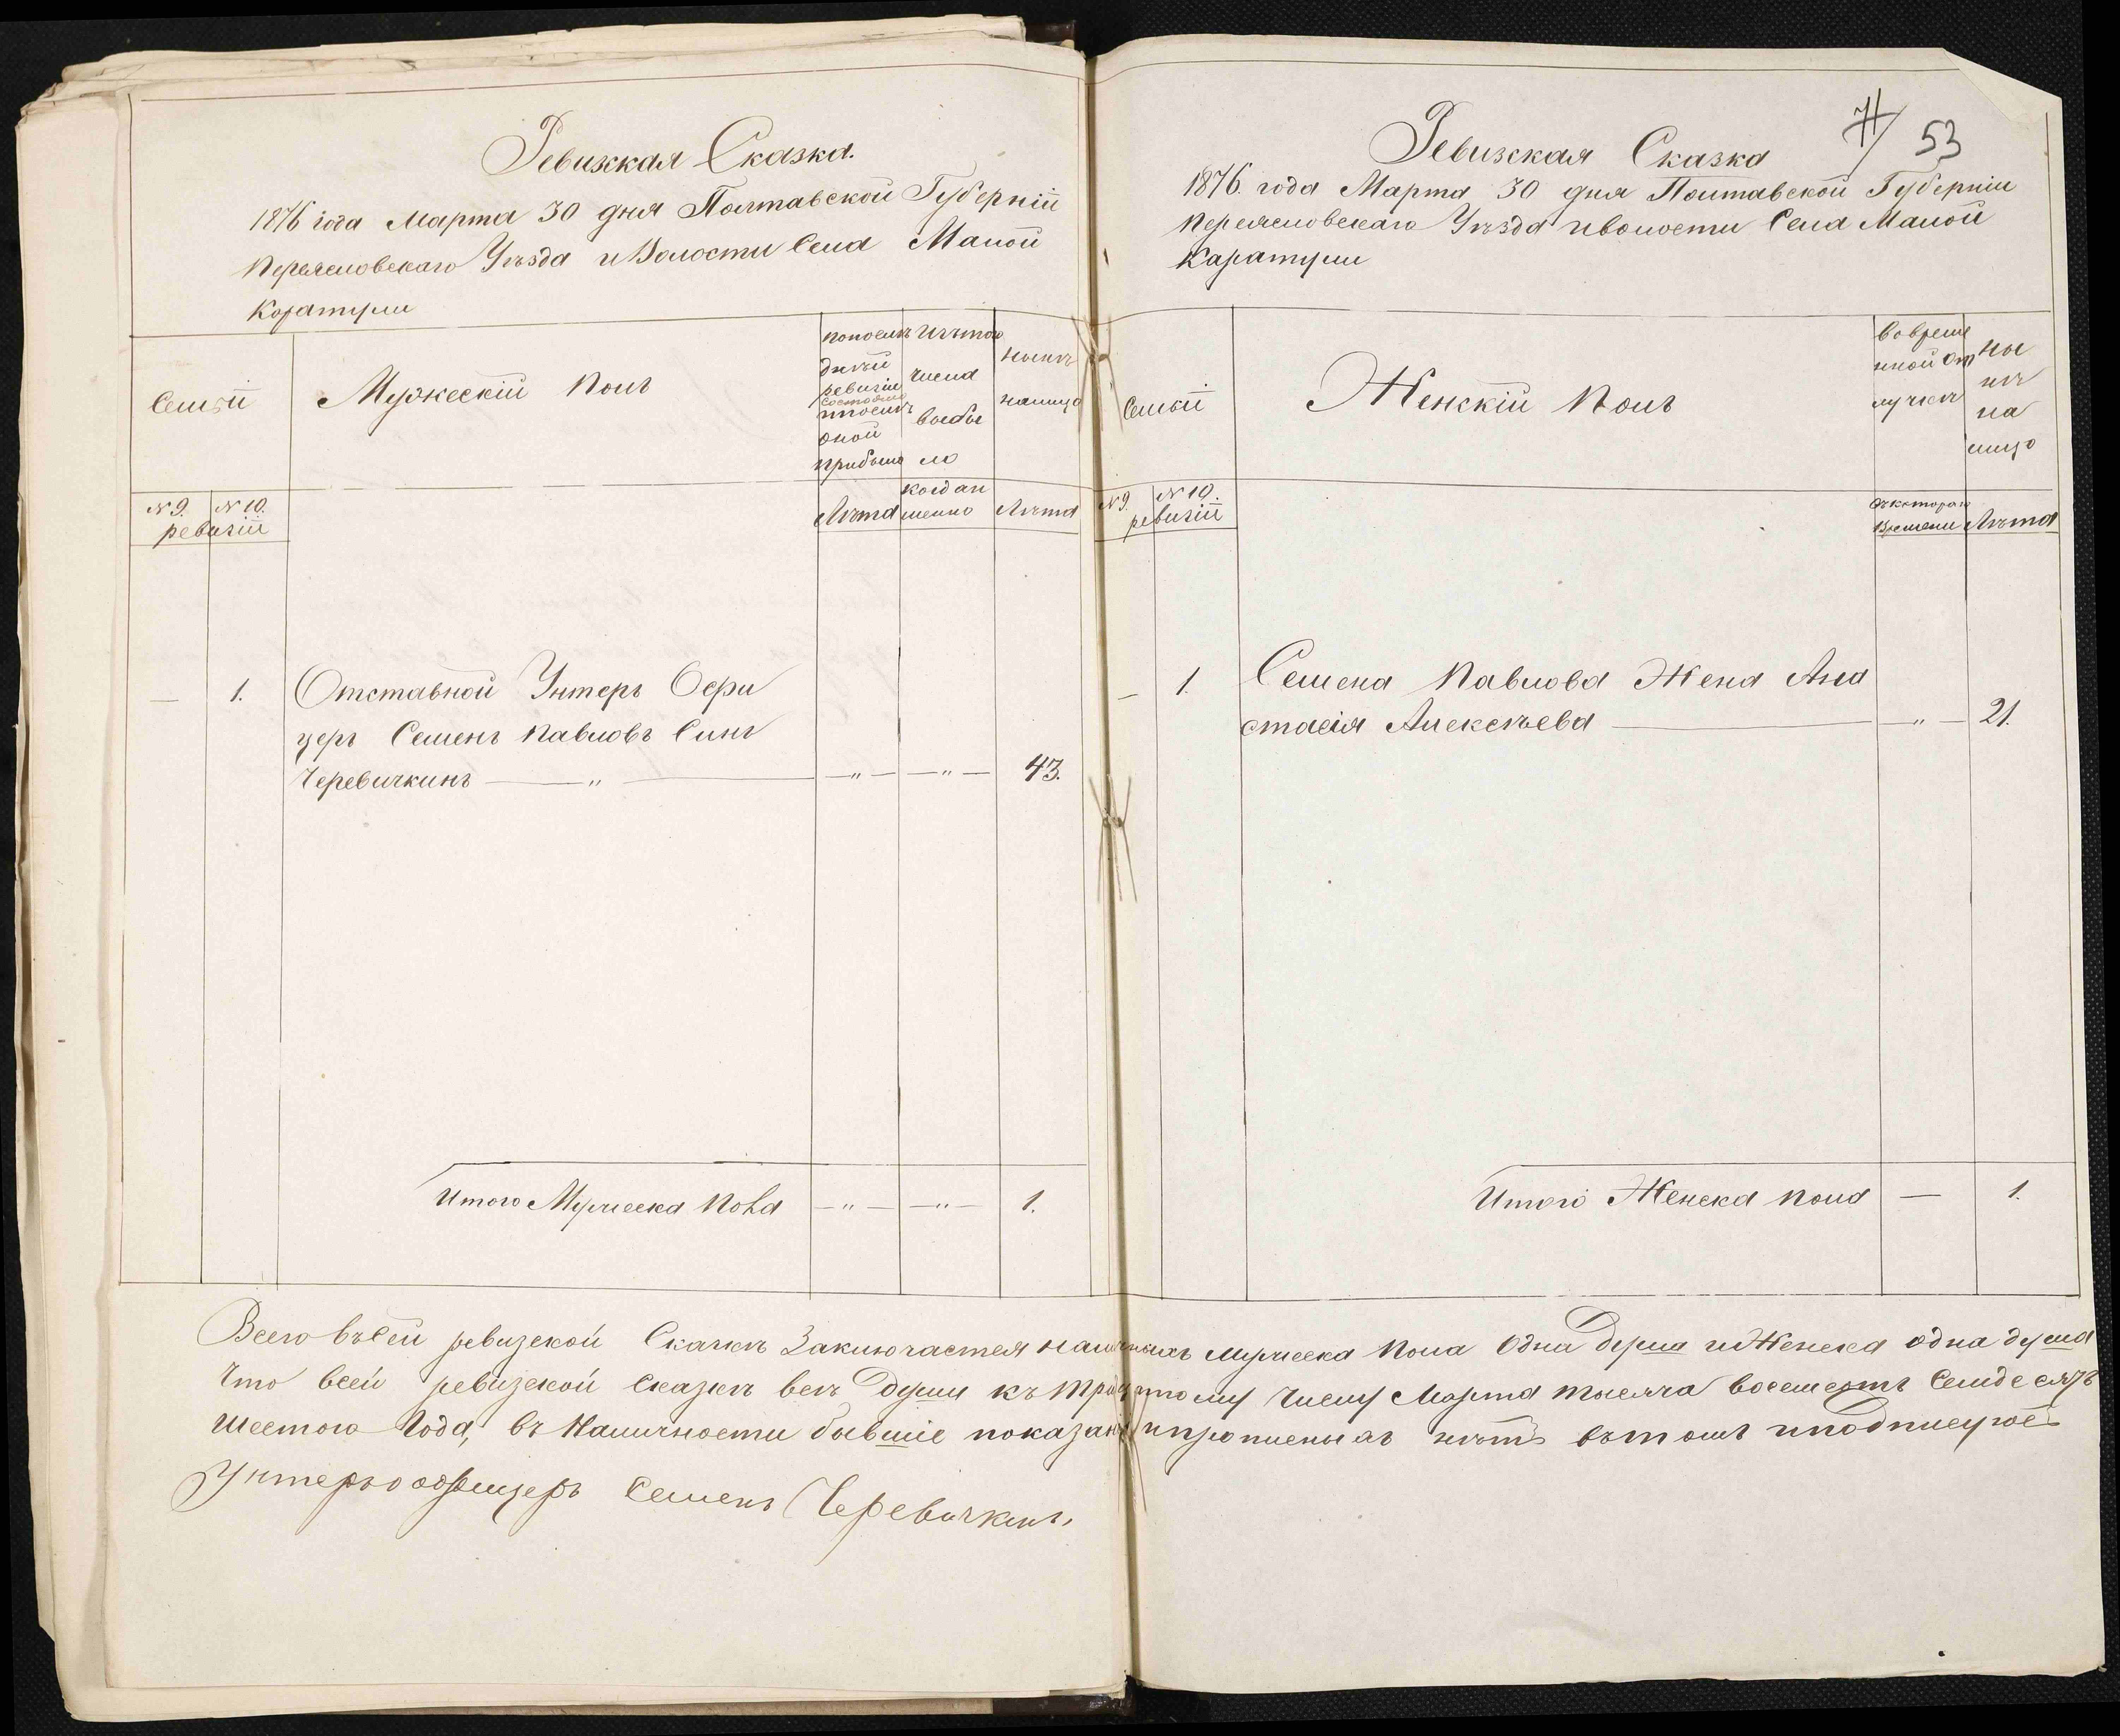 Ревизкая Сказка.
1876 года Марта 30 дня Полтавской Губернiи
Переясловскаго Уѣзда и Волости Села Малой
Коратули
Семьи
Мужескiй Полъ
пополѣ
днѣй
ревизiи
состояло
ипослѣ
оной
прибыло
Изътого
числа
выбы
ло
Нынѣ
налицо
№ 9. № 10.
ревизiи
Лѣта
когда и
менно
Лѣта
— 1. Отставной Унтеръ Офи
церъ Семенъ Павловъ Синъ
Черевичкинъ — „ — — „ — — „ — 43.
Итого Мужеска Пола — „ — — „ — 1.
71 53
Ревизкая Сказка
1876. года Марта 30 дня Полтавской Губернiи
Переясловскаго Уѣзда иволости Села Малой
Каратули
Семьи
Женскiй Полъ
Вовреме
нной От
лучкѣ
Ны
нѣ
на
лицо
№ 9. № 10.
ревизiи
Съкотораго
Времени
Лѣта
— 1. Семена Павлова Жена Ана
стасiя Алексѣева — — „ — 21.
Итого Женска пола — 1.
Всего въсей ревизской Сказкѣ Заключается наличныхъ мужеска пола Одна Душа и Женска одна душа
Что всей ревизской сказкѣ всѣ Души къ Тридцатому Числу Марта тысяча восемсотъ Семдесятъ
Шестого Года, въ Наличности бывшiе показаны ипрописныхъ нѣтъ вътомъ иподписуюсь
Унтеръ оффицеръ Семенъ Черевичкинъ.